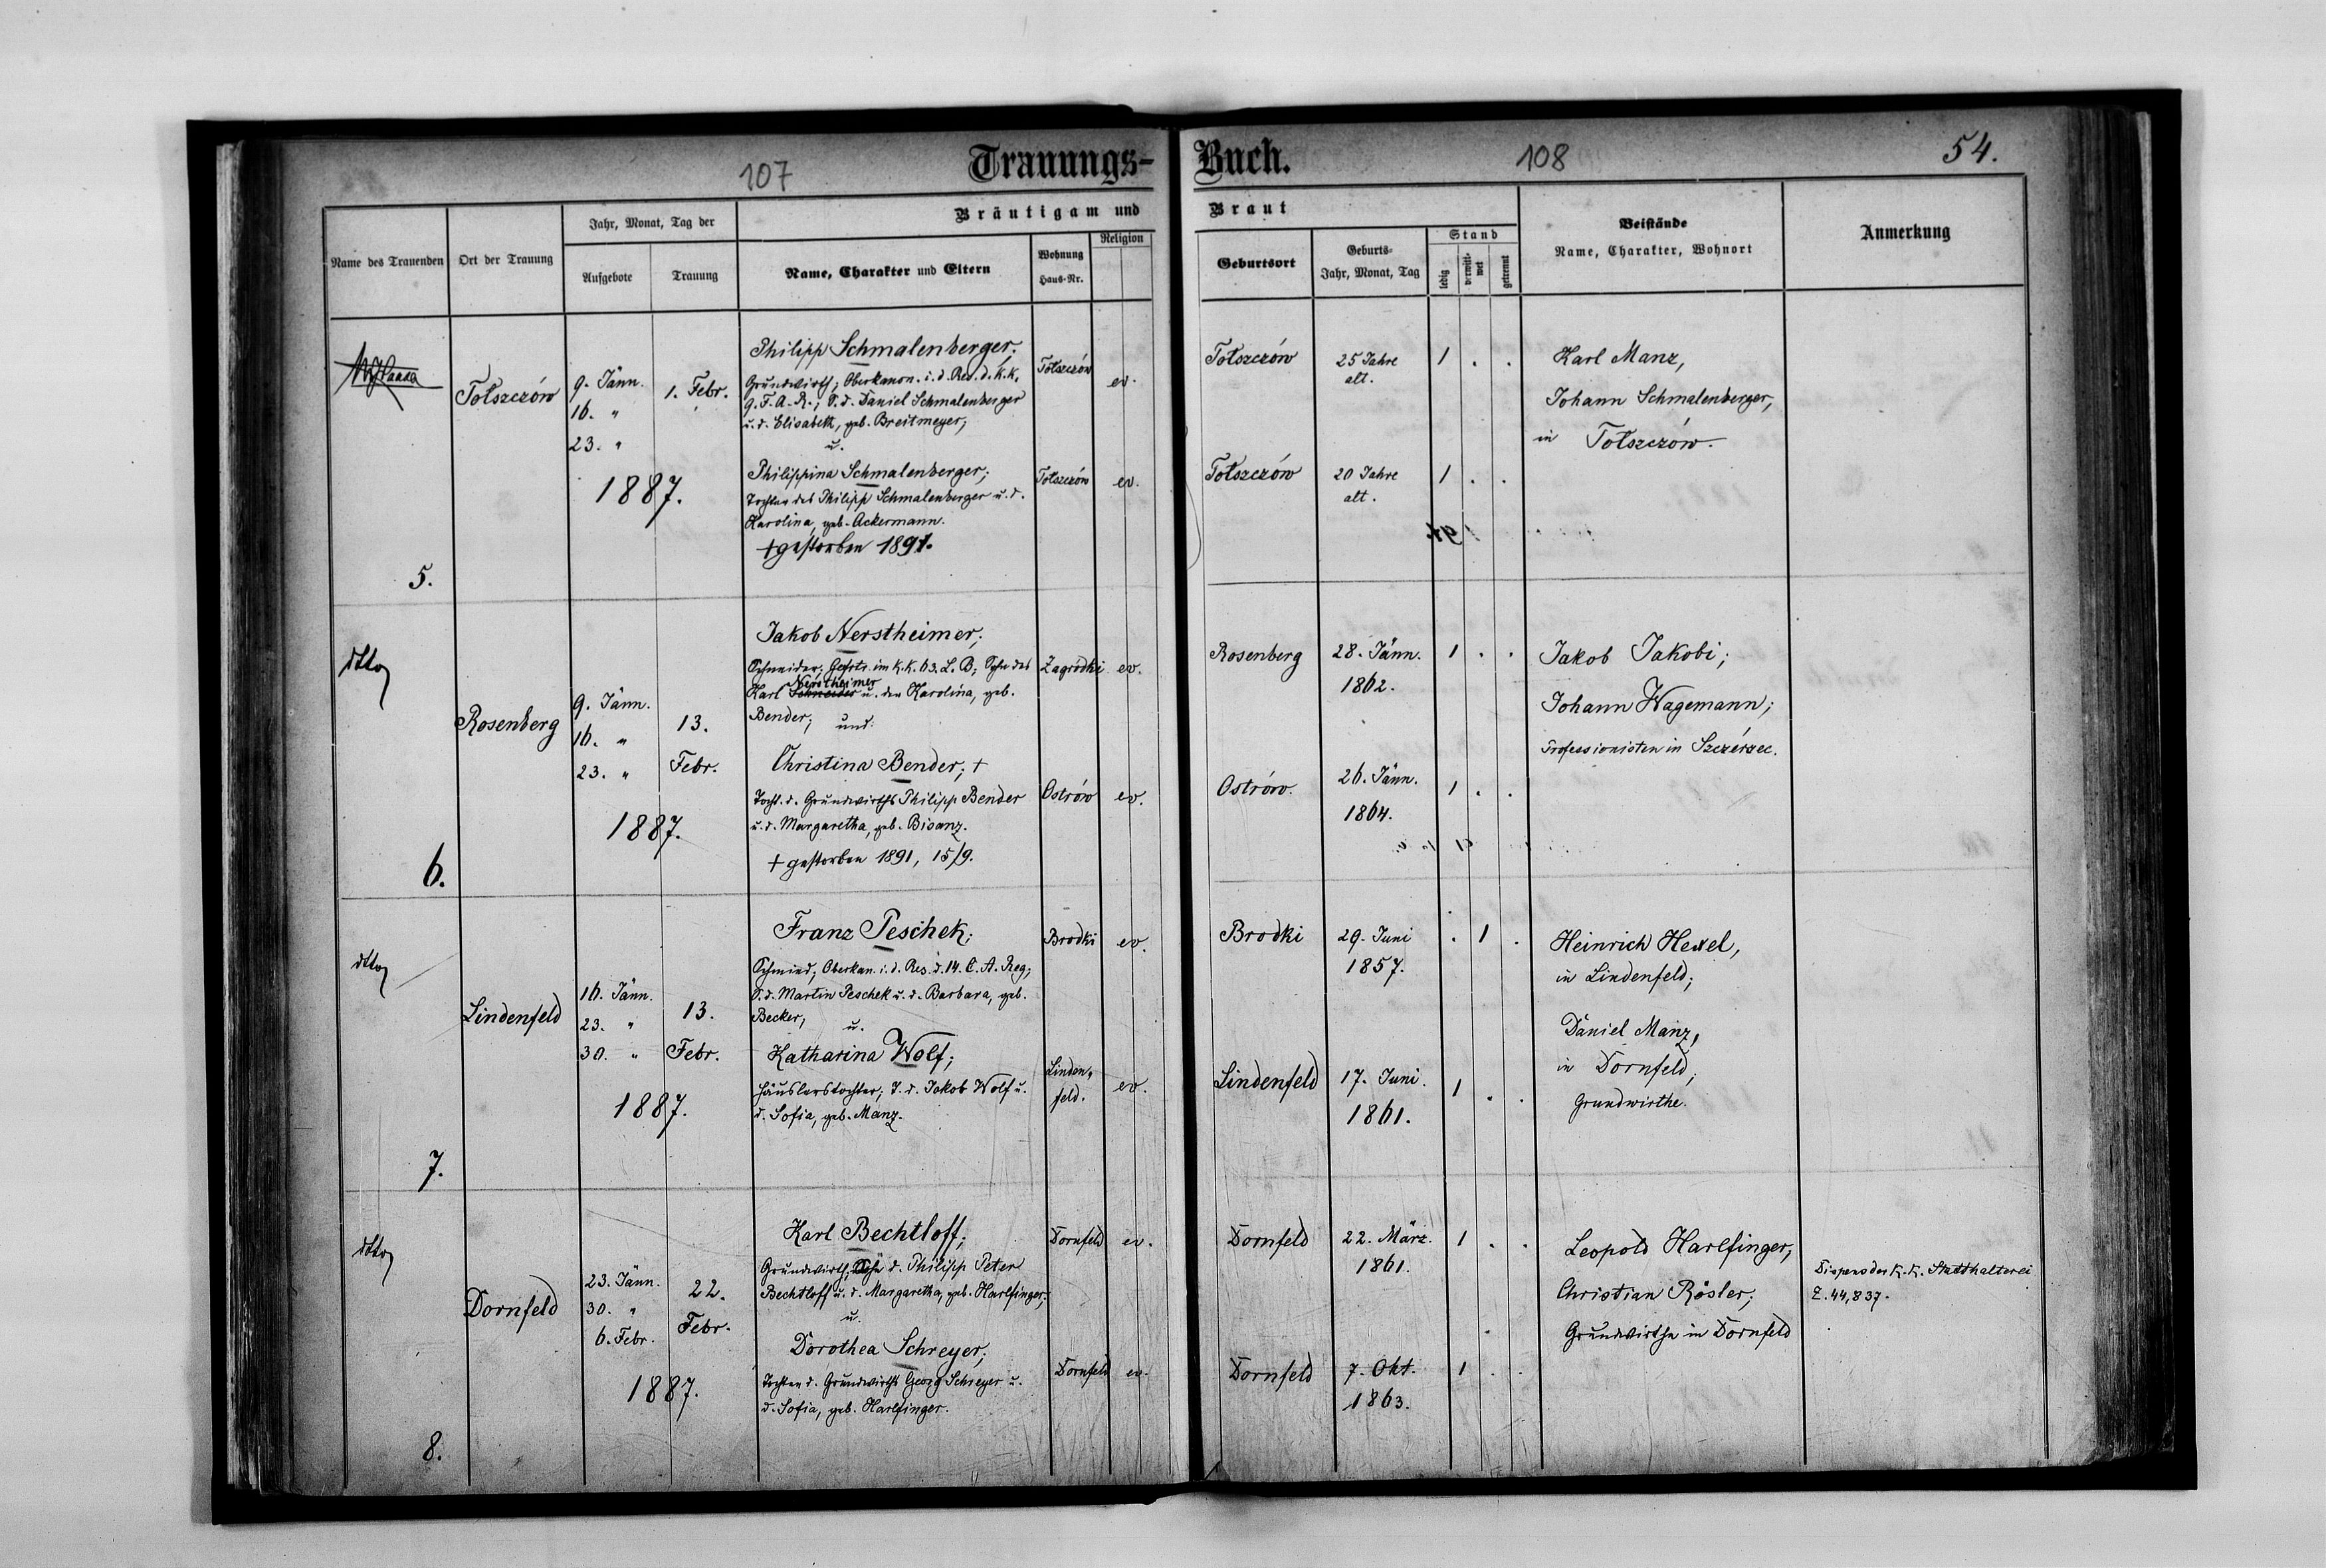 107
Trauungs-Buch.
108
54.
Name des Trauenden
Ort der Trauung
Jahr, Monat, Tag der
Aufgebote
Trauung
Bräutigam und Braut
Name, Charakter und Eltern
Wohnung
Haus-Nr.
Religion
Geburtsort
Geburts-
Jahr, Monat, Tag
Stand
ledig
verwitt-
wet
getrennt
Beistände
Name, Charakter, Wohnort
Anmerkung
5.
Tołszczów
9. Jänn.
16. "
23. "
1887.
1. Febr.
Philipp Schmalenberger.
Grundwirth; Oberkanon. i. d. Res. d. k. k.
9. F. A. R.; S. d. Daniel Schmalenberger
u. d. Elisabeth, geb. Breitmeyer;
u.
Philippina Schmalenberger;
Tochter des Philipp Schmalenberger u. d.
Karolina, geb. Ackermann.
† gestorben 1891.
Tołszczów
ev.
Tołszczów
ev.
Tołszczów
25 Jahre
alt.
1 . .
Tołszczów
20 Jahre
alt.
1 . .
Karl Manz,
Johann Schmalenberger,
in Tołszczów.
6.
dtto
Rosenberg
9. Jänn.
16. "
23. "
1887.
13.
Febr.
Jakob Nerstheimer;
Schneider; Gefrtr. im k. k. 63. L. B; Sohn des
Nerstheimer
Karl Schneider u. der Karolina, geb.
Bender; und:
Christina Bender; †
Tocht. d. Grundwirths Philipp Bender
u. d. Margaretha, geb. Bisanz.
† gestorben 1891, 15/9.
Zagródki
ev.
Ostrów
ev.
Rosenberg
28. Jänn.
1862.
1 . .
Ostrów.
26. Jänn.
1864.
1 . .
Jakob Jakobi;
Johann Wagemann;
Professionisten in Szczérzec.
7.
dtto
Lindenfeld
16. Jänn.
23. "
30. "
1887.
13.
Febr.
Franz Peschek;
Schmied; Oberkan. i. d. Res. d. 14. C. A. Reg;
S. d. Martin Peschek u. d. Barbara, geb.
Becker; u.
Katharina Wolf;
Häuslerstochter; T. d. Jakob Wolf u.
d. Sofia, geb. Manz.
Brodki
ev.
Linden-
feld.
ev.
Brodki
29. Juni
1857.
. 1 .
Lindenfeld
17. Juni.
1861.
1 . .
Heinrich Hexel,
in Lindenfeld;
Daniel Manz,
in Dornfeld;
Grundwirthe.
8.
dtto
Dornfeld
23. Jänn.
30. "
6. Febr.
1887.
22.
Febr.
Karl Bechtloff;
Grundwirth; Sohn d. Philipp Peter
Bechtloff u. d. Margaretha, geb. Harlfinger;
u.
Dorothea Schreyer;
Tochter d. Grundwirths Georg Schreyer u.
d. Sofia, geb. Harlfinger.
Dornfeld
ev.
Dornfeld
ev.
Dornfeld
22. März.
1861.
1 . .
Dornfeld
7. Okt.
1863.
1 . .
Leopold Harlfinger,
Christian Rösler;
Grundwirthe in Dornfeld
Dispens der k. k. Statthalterei
Z. 44,837.